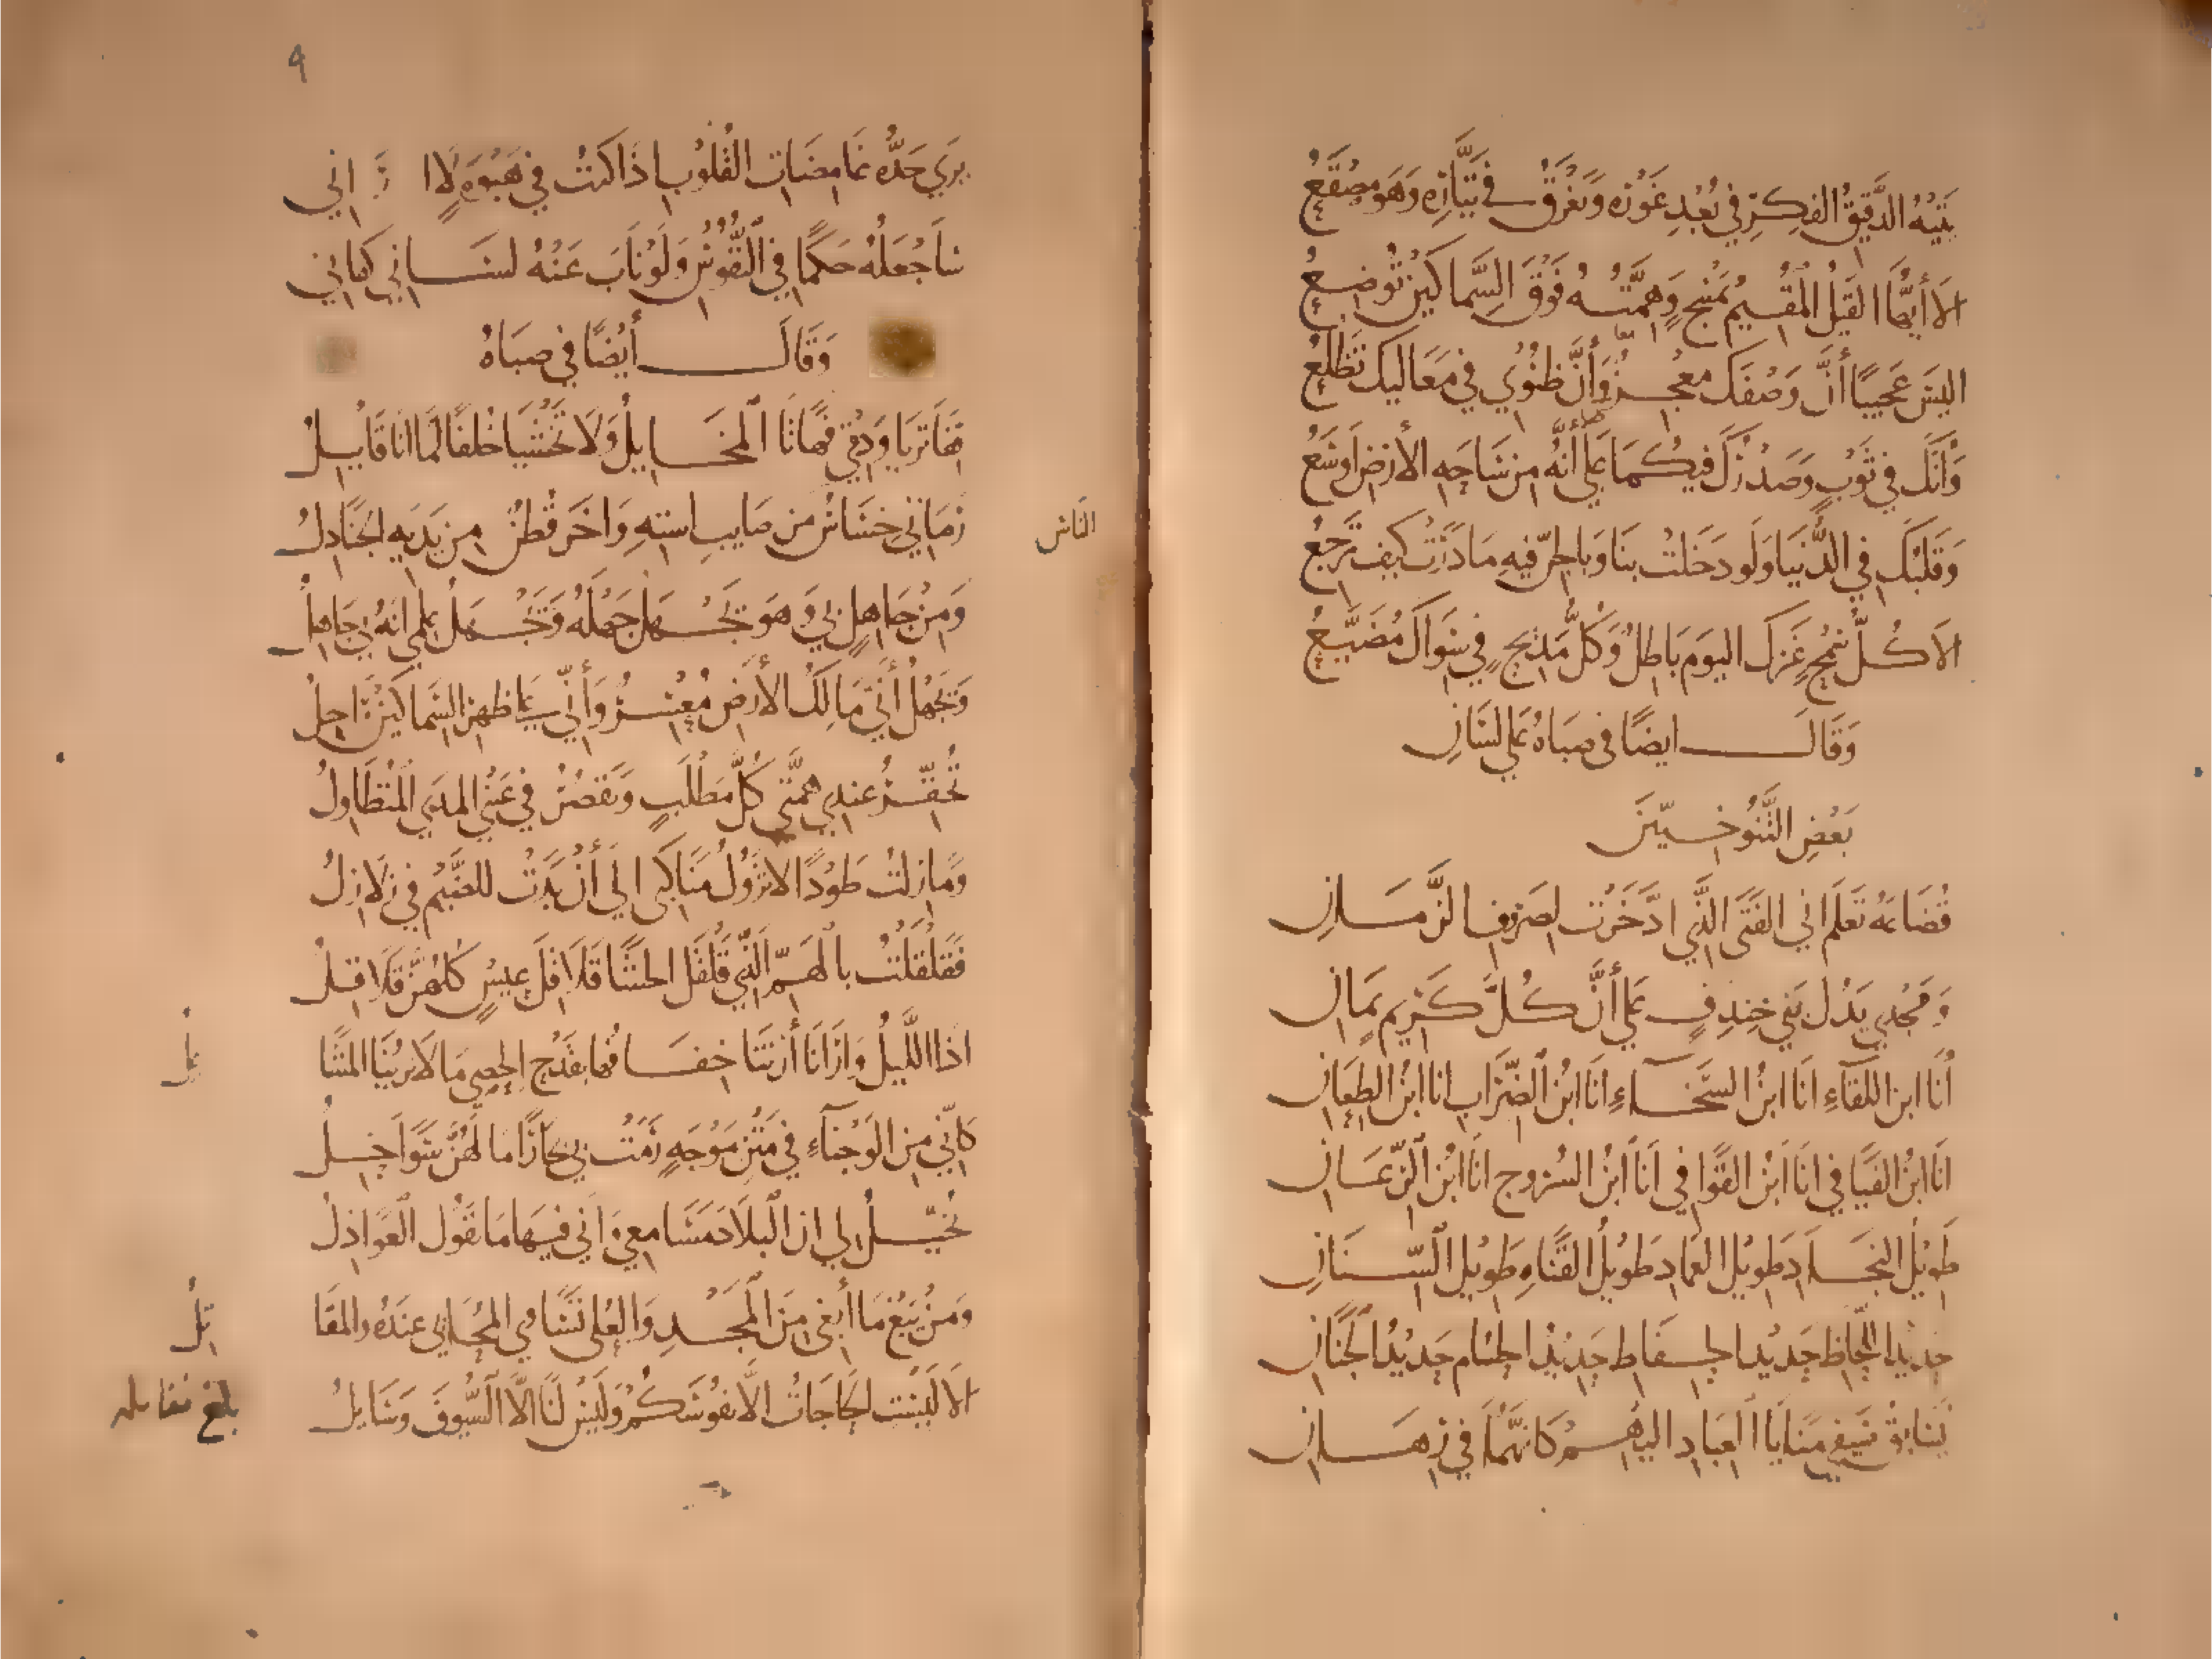 يَتِيْهُ الدَّقِيقُ الفِكرِ فِي بُعْدِ غَوْرِهِ وَيَغْرَقُ فِي تَيَّارِهِ وَهوَ مِصْقَعُ
الَا أَيُّهَا القَيْلُ الْمُقِيمُ بِمَنْبِجٍ وَهِمَّتُهُ فَوْقَ السِّمَاكَيْنِ تُوضِعُ
اليسَ عَجِيبًا أَنَّ وَصْفَكَ مُعْجِزٌ وَأَنَّ ظنُوْنِي فِي مَعَاليكَ تَظلَعُ
وَأَنَّكَ فِي ثَوْبٍ وَصَدْرُكَ فيكُمَا عَلى أَنَّهُ مِن سَاحَةِ الأرضِ أَوسَعُ
وَقَلبُكَ فِي الدُّنيَا وَلَو دَخَلتْ بنَا وَبالجنّ فيهِ مَا دَرَتْ كيفَ تَرجعُ
الَا كُلُّ سَمْحٍ غَيرَكَ اليَومَ بَاطِلٌ وَكُلُّ مَدِيحٍ فِي سِوَاكَ مُضَيَّعُ
وَقَالَ ايضًا فى صِبَاهُ عَلى لِسَانِ
بَعْضِ التَّنُوخِييّنَ
قُضَاعَهُ تَعلَم اني الفَتَى الَّذِي ادَّخَرَتْ لِصَرُوفِ الزَّمَانِ
وَمَجْدِي يَدُل بَنِي خِندِفٍ عَلى أَنَّ كُلَّ كَرِيمٍ يَمَانِ
أَنَا ابن اللقَآءِ انَا ابنُ السَّخَآءِ انَا ابْنُ الضِّرَابِ انا ابنُ الطِعَانِ
انَا ابْنُ الفَيَافي انَا ابْنُ القَوَافِي أَنَا ابْنُ السُرُوجِ انَا ابْنُ الرِّعَانِ
طَوِيْلُ النِجَادِ طَوِيْلُ العِمَادِ طَوِيْلُ القَنَاةِ طَوِيْلُ السِّنَانِ
حَدِيدُ اللِّحَاظِ حَدِيْدُ الحِفَاظِ حَدِيْدُ الحُسَامِ حَدِيْدُ الجَنَانِ
يُسَابِقُ سَيفِي مَنَايَا العِبَادِ اليهِمْ كَانَّهُمَا فِي رِهَانِ
٩
يرَي حَدُّه غَامِضَاتِ القُلُوْبِ اذَا كنتُ فِي هَبْوَةٍ لَا ارَانِي
سَأَجْعَلُهُ حَكَمًا فِي النُّفُوْسِ وَلَوْ نَابَ عَنْهُ لِسَانِي كَفَانِي
وَقَالَ أَيْضًا فِي صِبَاهُ
قِفَا تَرَيَا وَدْقِي فَهَاتَا المَخَايِلُ وَلَا تَخْشَيَا خُلْفًا لِمَا انَا قَايِلُ
رَمَانِي خِسَاسُ مِن صَايبِ اسْتِهِ وَاخَرَ قُطْنٌ مِن يَدَيْهِ الجَنَادِلُ
الناس
وَمِنْ جَاهِلٍ بِي وَهوَ يَجْهَل جَهْلَهُ وَيَجْهَلُ عِلمِي انَّهُ بِي جَاهِلُ
وَيَجْهَلُ أَنِّي مَالِكُ الأَرْضِ مُعْسِرٌ وَأَنِّي عَلى ظهرِ السِّمَاكَيْنِ رَاجِلُ
تُحَقِّرُ عِندِي هِمَّتِي كُلَّ مَطْلَبٍ وَيَقصُرُ فِي عَيْنِي المدَي المُتَطَاوِلُ
وَمَا زِلْتُ طَوْدًا لا تَزُوْلُ مَنَاكِبِى الِي أَنْ بَدَتْ للضَّيْمِ فِي زِلَازِلُ
فَقَلْقَلْتُ بِالْهَمِّ الَّذِي قَلْقَلَ الحَشَا قَلَاقِلَ عِيسٍ كُلهُنَّ قَلَاقِلُ
اذَا اللَّيلُ وَارَانَا أَرَتنَا خِفَافُهَا بِقَدْحِ الحَصِي مَا لَا تُرِيْنَا المَشَا
عل
كَأَنِّي مِنَ الوَجْنَآءِ فِي مَتْنِ مَوْجَةٍ رَمَتْ بِي بِحَارًا مَا لَهُنَّ سَوَاحِلُ
يُخَيَّلُ لِي ان البِلَادَ مَسَامعِي وَأَنِّي فِيهَا مَا تَقُولُ العَوَاذِلُ
وَمَنْ يَبْغِ مَا أَبْغِي مِنَ المَجْدِ وَالعُلى تَسَاوي المحَايِي عندَهُ والمَقَا
تلُ
الَا لَيْسَتِ الحَاجَاتُ الَّا نفُوسَكُمْ وَلَيْسَ لَنَا الَّا السُّيُوفَ وَسَايِلُ
بلغ مقابله